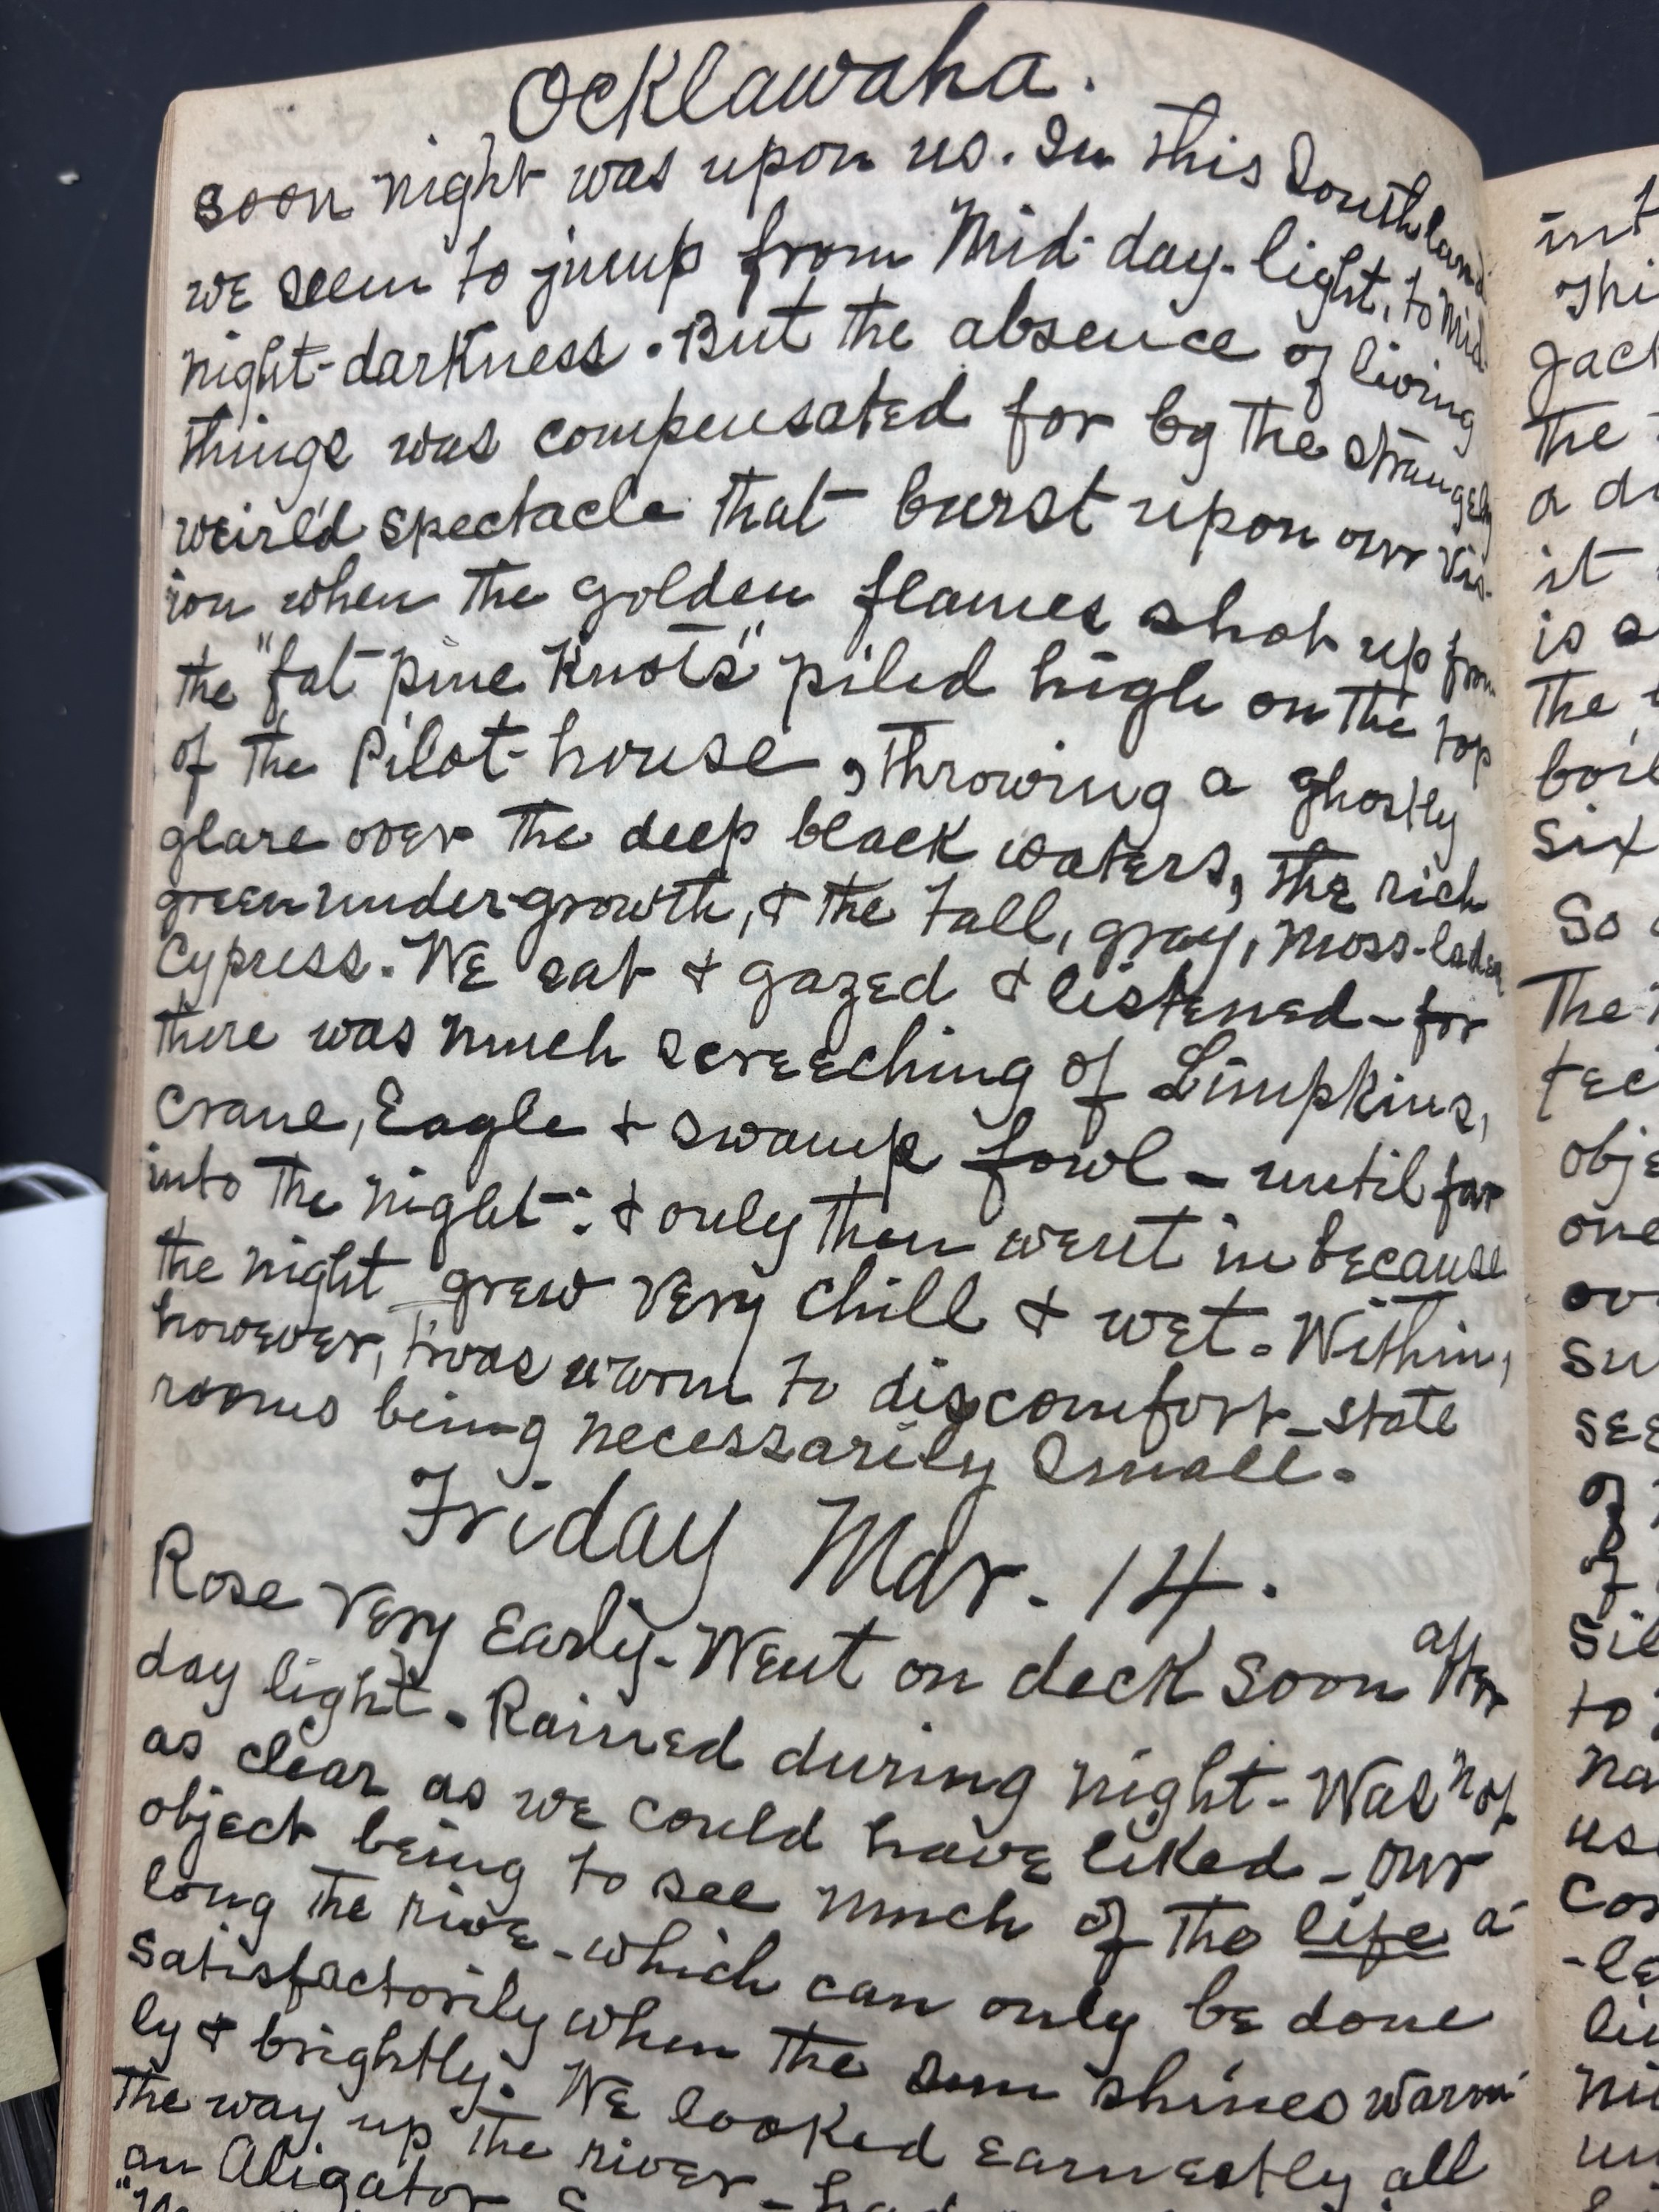 Ocklawaha.
soon night was upon us. In this Southland
we seem to jump from Mid-day-light, to Mid
night-darkness. But the absence of living
things was compensated for by the strangely
weird spectacle that burst upon our vis-
ion when the golden flames shot up from
the "fat pine Knots" piled high on the top
of the Pilot-house, throwing a ghostly
glare over the deep black waters, the rich
green undergrowth, & the tall, gray, moss-laden
Cypress. We sat & gazed & listened - for
there was much screeching of Limpkins,
Crane, Eagle & swamp fowl - until far
into the night: & only then went in because
the night grew very chill & wet. Within,
however, twas warm to discomfort - state
rooms being necessarily small.
Friday Mar. 14.
Rose very Early - Went on deck soon after
day light. Rained during night - Was not
as clear as we could have liked - Our
object being to see much of the life a-
long the rive - which can only be done
satisfactorily when the sun shines warm-
ly & brightly. We looked earnestly all
the way up the river - had
an Aligator
int
Thi
Jack
the
a
it
is
the
boil
six
So
The
tec
obje
one
ov
su
see
of
of
Sil
to
na
us
Co
-le
li